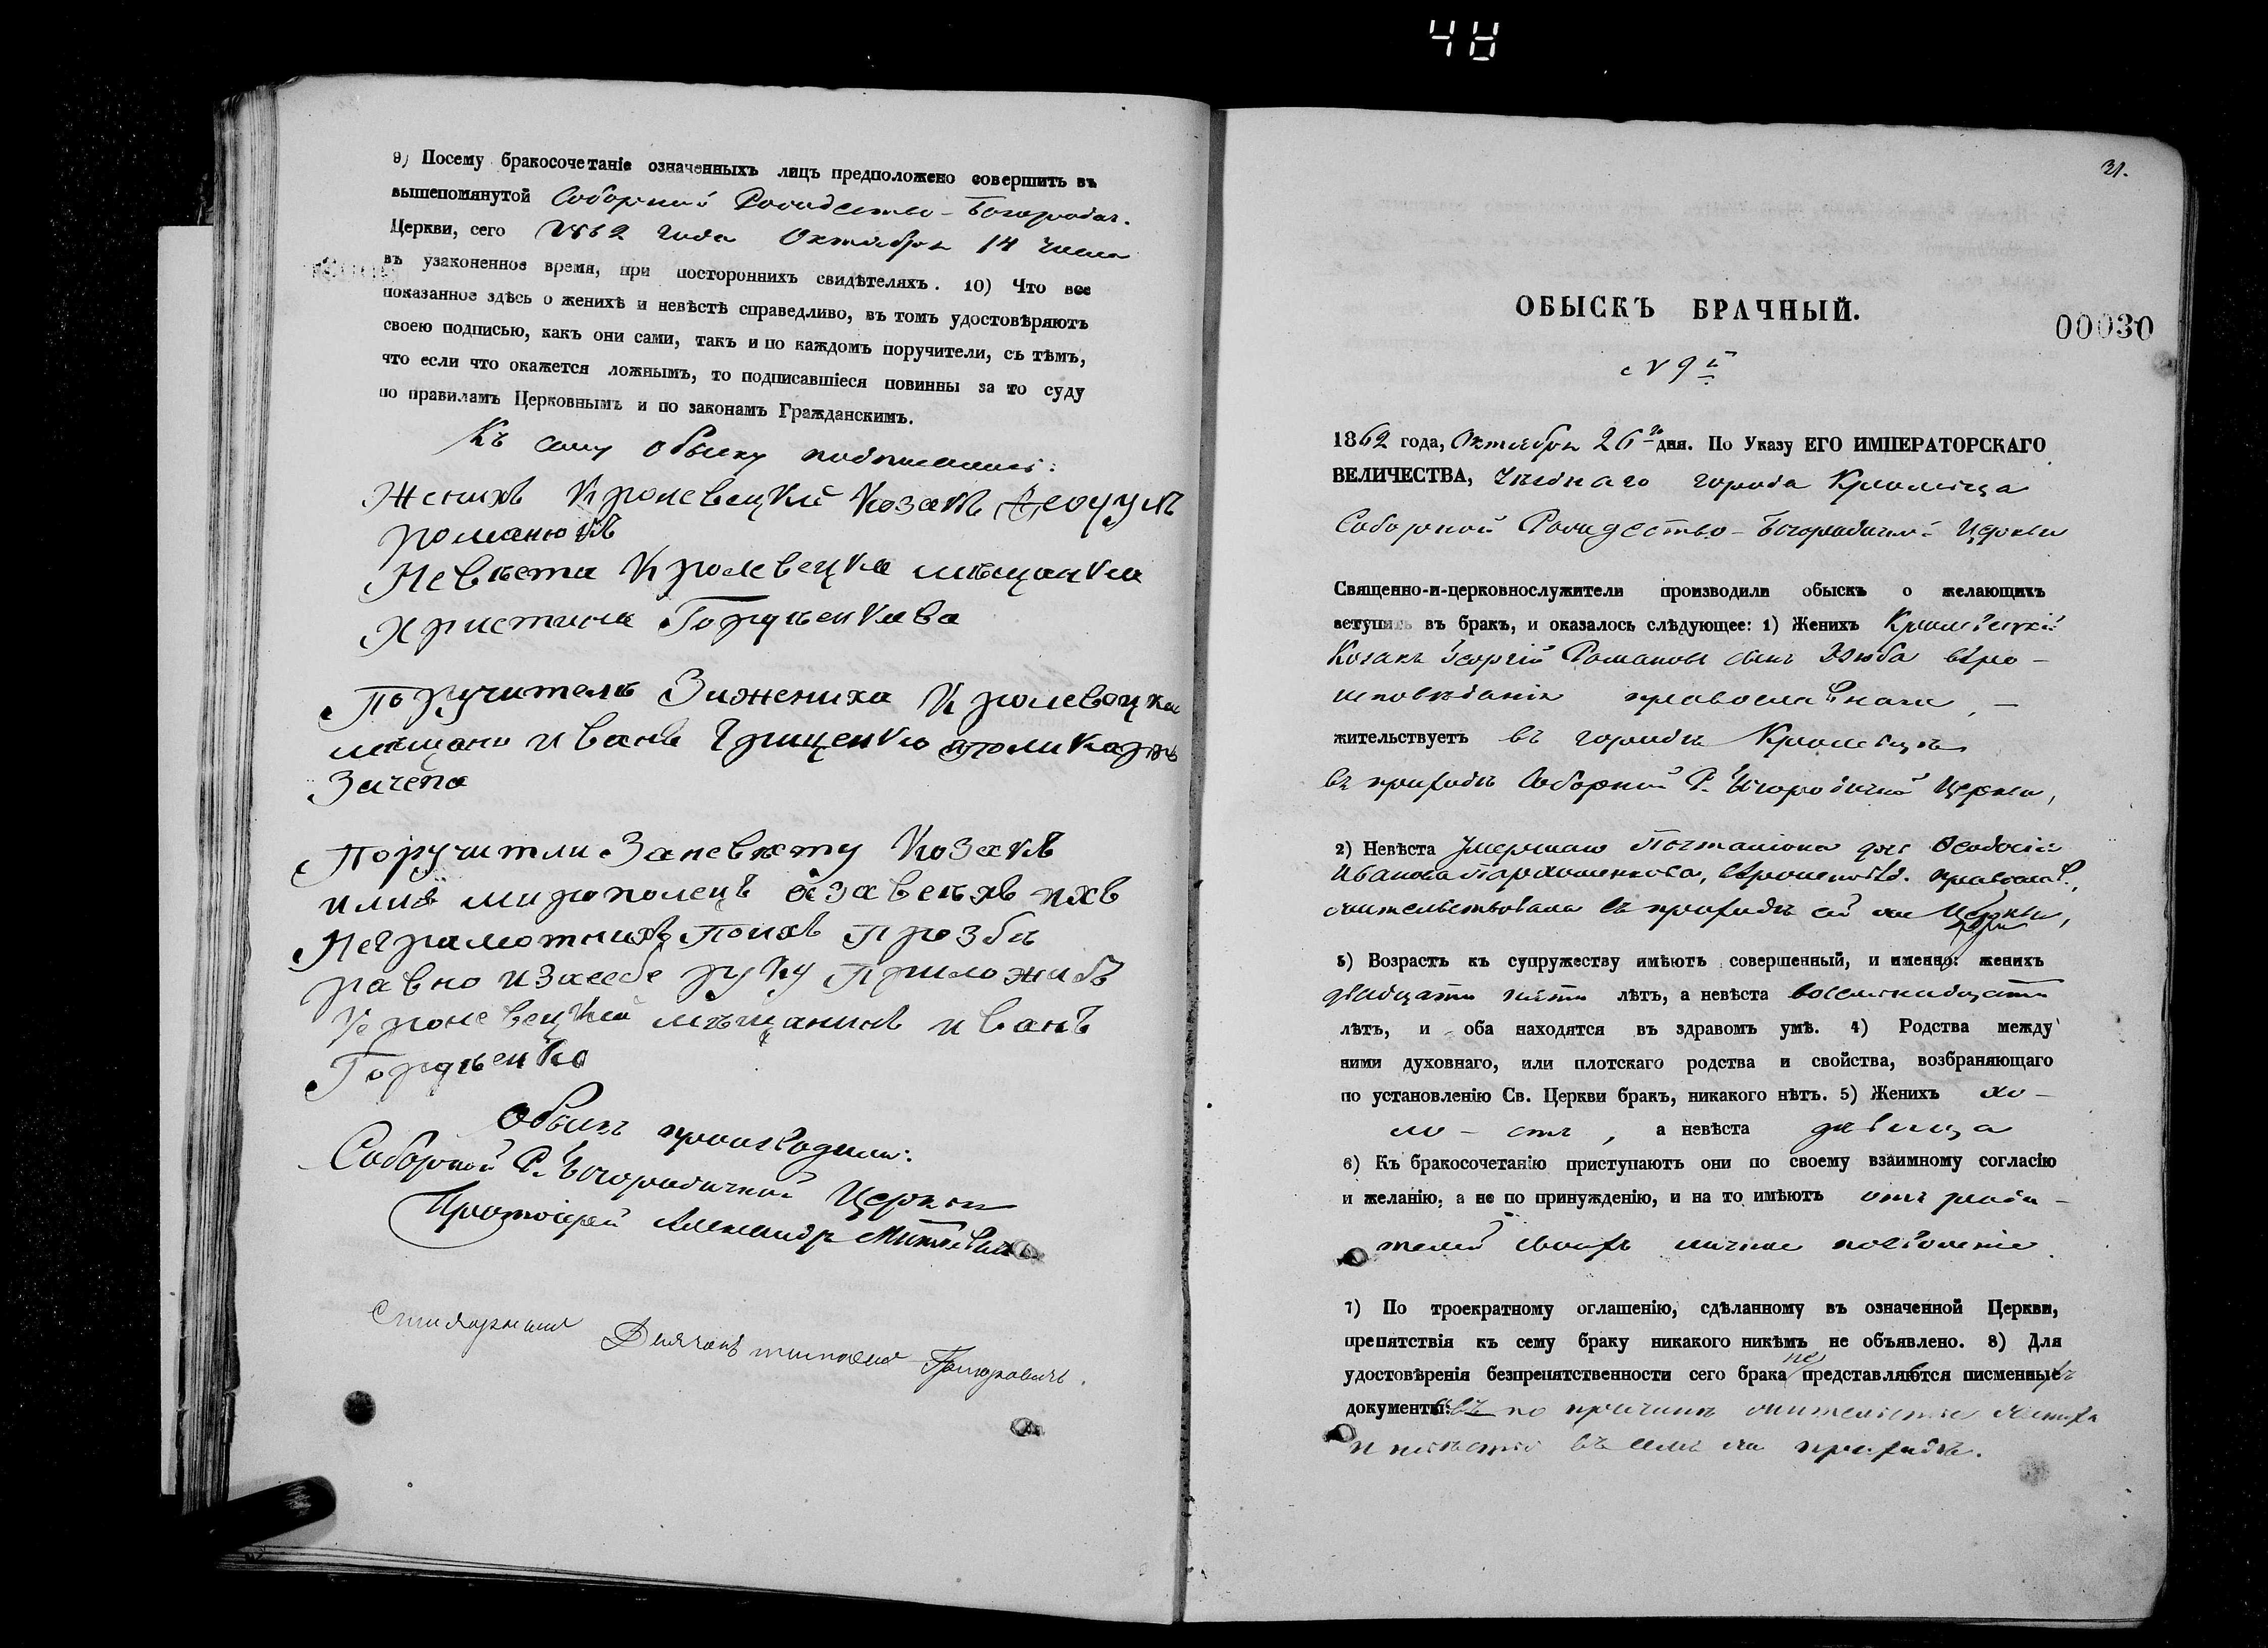 48
9) Посему бракосочетаніе означенныхъ лицъ предположено совершить въ
вышепомянутой Соборной Рождество-Богородич.
Церкви, сего 1862 года Октября 14 числа
въ узаконенное время, при постороннихъ свидѣтеляхъ. 10) Что все
показанное здѣсь о женихѣ и невѣстѣ справедливо, въ томъ удостовѣряютъ
своею подписью, какъ они сами, такъ и по каждомъ поручители, съ тѣмъ,
что если что окажется ложнымъ, то подписавшіеся повинны за то суду
по правиламъ Церковнымъ и по законамъ Гражданскимъ.
Къ сему обыску подписались:
Женихъ Кролевецкий козакъ
романюкъ
Невѣста Кролевецкая мѣщанка
христина Гордѣенкова
Поручителѣ Зажениха Кролевецкие
мѣщани иванъ Грищенко
Зачепа
Поручитли Заневѣсту Козакъ
илия мирополецъ азавсѣхъ ихъ
Неграмотнихъ Поихъ Прозбѣ
равно изасебе руку Приложивъ
Кролевецкий мѣщанинъ иванъ
Гордѣенко
Обыскъ производили:
Соборной Р. Богородичной Церкви
Протоіерей Александръ
Діячокъ Григоровичъ.
31.
ОБЫСКЪ БРАЧНЫЙ.
00030
№ 9й
1862 года, Октября 26го дня. По Указу ЕГО ИМПЕРАТОРСКАГО
ВЕЛИЧЕСТВА, уѣзднаго города Кролевца
Соборной Рождество-Богородичной Церкви
Священно-и-церковнослужители производили обыскъ о желающихъ
вступить въ бракъ, и оказалось слѣдующее: 1) Женихъ Кролевецкій
Козакъ Георгій Романовъ сынъ Дзюба вѣро-
исповѣданія православнаго, –
жительствуетъ въ городѣ Кролевцѣ
въ приходѣ Соборной Р. Богородичной Церкви,
2) Невѣста умершаго Почталіона дочь Феодосія
Иванова Пархоменкова, вѣроисповѣд. православ.,
жительствовала въ приходѣ сей же Церкви,
3) Возрастъ къ супружеству имѣютъ совершенный, и именно: женихъ
двадцати пяти лѣтъ, а невѣста восемнадцати
лѣтъ, и оба находятся въ здравомъ умѣ. 4) Родства между
ними духовнаго, или плотскаго родства и свойства, возбраняющаго
по установленію Св. Церкви бракъ, никакого нѣтъ. 5) Женихъ хо-
ло-стъ, а невѣста дѣвица
6) Къ бракосочетанію приступаютъ они по своему взаимному согласію
и желанію, а не по принужденію, и на то имѣютъ отъ роди-
телей своихъ личное позволеніе.
7) По троекратному оглашенію, сдѣланному въ означенной Церкви,
препятствія къ сему браку никакого никѣмъ не объявлено. 8) Для
удостовѣренія безпрепятственности сего брака не представляются писменныхъ
документовъ по причинѣ жительства жениха
и невѣсты въ семъ же приходѣ.